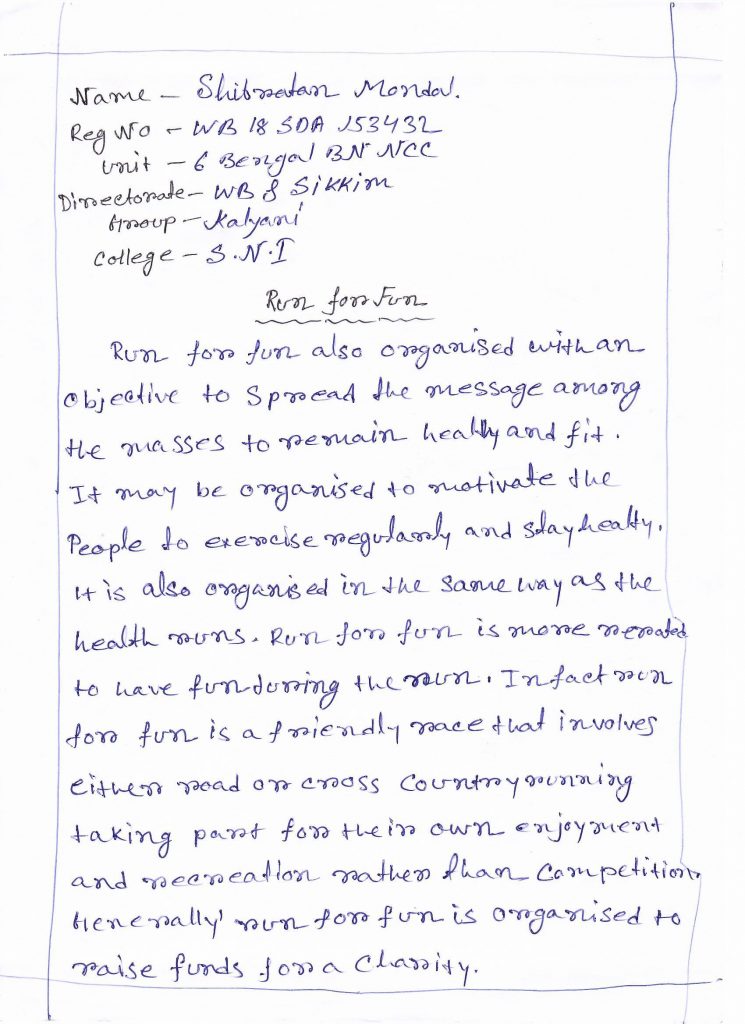 Name - Shibratan Mondal.
Reg No - WB 18 SDA 153432
Unit - 6 Bengal BN NCC
Directorate - WB & Sikkim
Group - Kalyani
College - S.N.I
Run for Fun
Run for fun also organised with an
objective to Spread the message among
the masses to remain healthy and fit.
It may be organised to motivate the
People to exercise regularly and stay healty.
It is also organised in the same way as the
health runs. Run for fun is more reated
to have fun during the run. In fact run
for fun is a friendly race that involves
either road or cross Country running
taking part for their own enjoyment
and recreation rather than Competition.
Generally' run for fun is organised to
raise funds for a Charity.